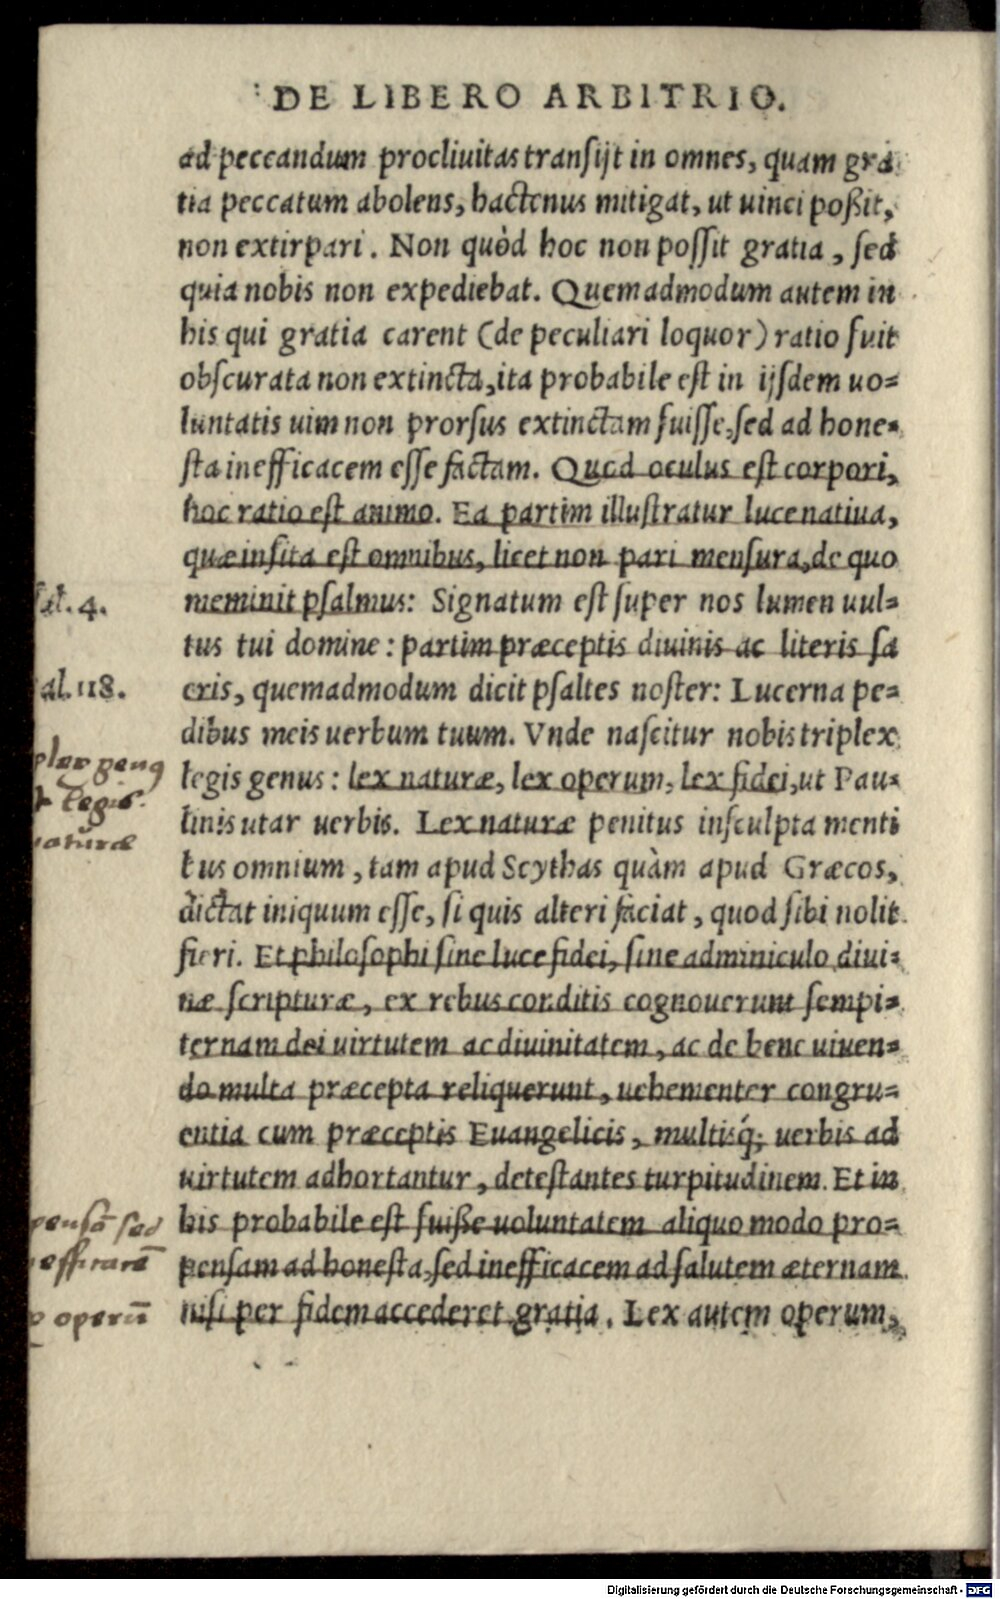 DE LIBERO ARBITRIO.
ad peccandum procliuitas transijt in omnes, quam gra
tia peccatum abolens, hactenus mitigat, ut uinci poßit,
non extirpari. Non quòd hoc non possit gratia, sed
quia nobis non expediebat. Quemadmodum autem in
his qui gratia carent (de peculiari loquor) ratio fuit
obscurata non extincta, ita probabile est in ijsdem uo=
luntatis uim non prorsus extinctam fuisse, sed ad hone=
sta inefficacem esse factam. Quod oculus est corpori,
hoc ratio est animo. Ea partim illustratur luce natiua,
quæ insita est omnibus, licet non pari mensura, de quo
sal. 4.
meminit psalmus: Signatum est super nos lumen uul=
tus tui domine: partim præceptis diuinis ac literis sa
al. 118.
cris, quemadmodum dicit psaltes noster: Lucerna pe=
dibus meis uerbum tuum. Vnde nascitur nobis triplex
plex genus
legis genus: lex naturæ, lex operum, lex fidei, ut Pau=
legis.
linis utar uerbis. Lex naturæ penitus insculpta menti
naturæ
bus omnium, tam apud Scythas quàm apud Græcos,
dictat iniquum esse, si quis alteri faciat, quod sibi nolit
fieri. Et philosophi sine luce fidei, sine adminiculo diui=
næ scripturæ, ex rebus conditis cognouerunt sempi=
ternam dei uirtutem ac diuinitatem, ac de bene uiuen=
do multa præcepta reliquerunt, uehementer congru=
entia cum præceptis Euangelicis, multisq́; uerbis ad
uirtutem adhortantur, detestantes turpitudinem. Et in
pensā sed
his probabile est fuiße uoluntatem aliquo modo pro=
efficacē
pensam ad honesta, sed inefficacem ad salutem æternam
operū
nisi per fidem accederet gratia. Lex autem operum,
Digitalisierung gefördert durch die Deutsche Forschungsgemeinschaft - DFG